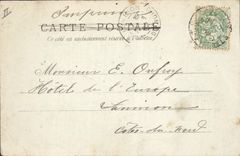 Imprimé
CARTE POSTALE
Ce côté est exclusivement réservé à l'adresse
Monsieur E. Onfroy
Hôtel de l'Europe
Lannion
Côtes-du-Nord